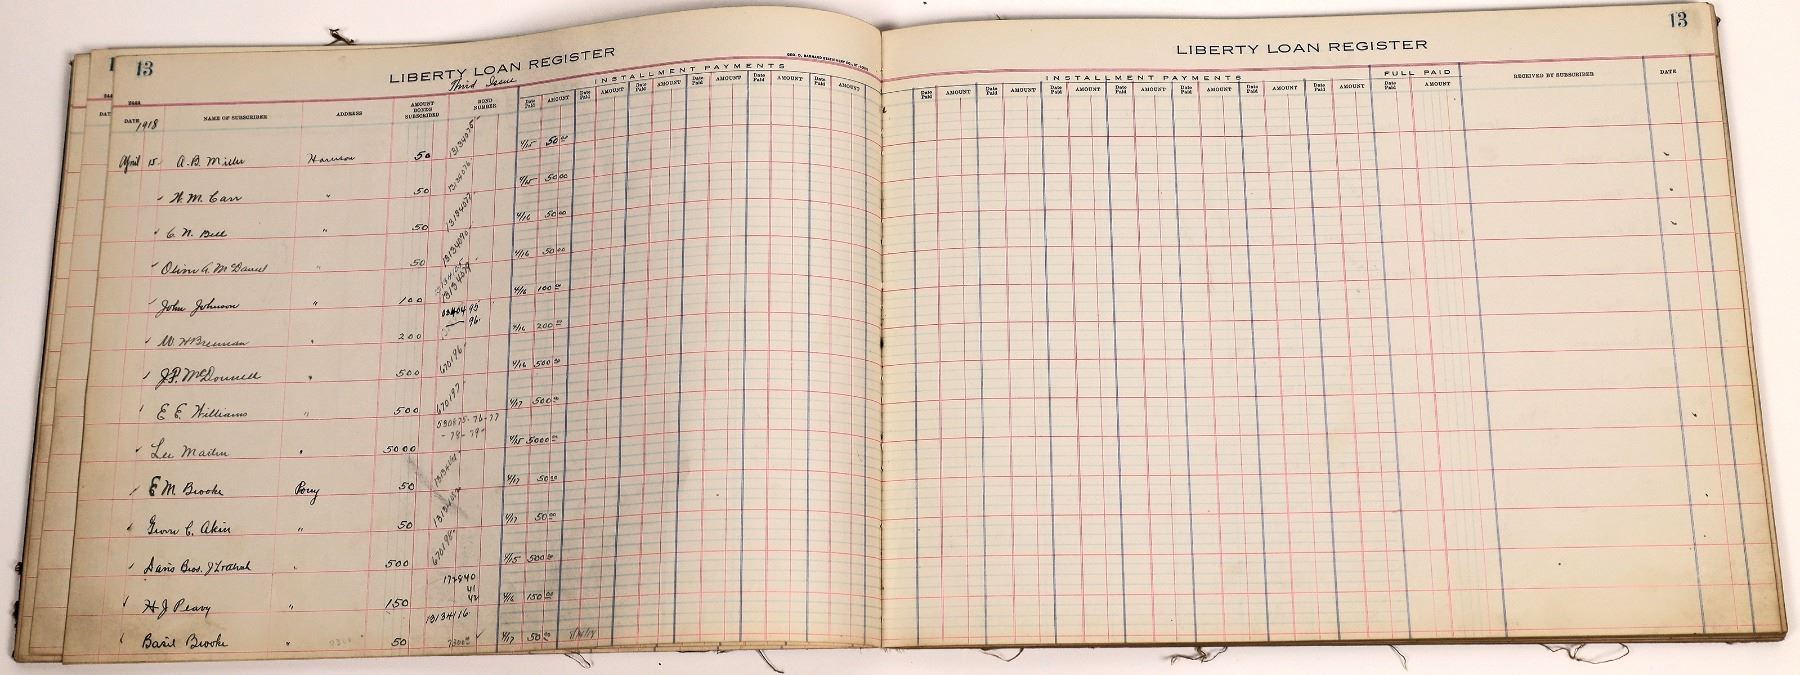 13
13
LIBERTY LOAN REGISTER
LIBERTY LOAN REGISTER
Third Issue
GEO. D. BARNARD STATIONERY CO., ST. LOUIS
INSTALLMENT PAYMENTS
INSTALLMENT PAYMENTS FULL PAID
DATE NAME OF SUBSCRIBER ADDRESS AMOUNT BONDS SUBSCRIBED BOND NUMBER Date Paid AMOUNT Date Paid AMOUNT Date Paid AMOUNT Date Paid AMOUNT Date Paid AMOUNT Date Paid AMOUNT
Date Paid AMOUNT Date Paid AMOUNT Date Paid AMOUNT Date Paid AMOUNT Date Paid AMOUNT Date Paid AMOUNT Date Paid AMOUNT Date Paid AMOUNT RECEIVED BY SUBSCRIBER DATE
1918
April 15 A. B. Miller Harrison 50 13134075 4/15 50 00
" W. M. Carr " 50 13134076 4/15 50 00
" C. N. Bell " 50 4/16 50 00
" A. McDaniel " 50 13134090 4/16 50 00
" John Johnson " 100 4/16 100 00
" W H Brennan " 200 95 96 4/16 200 00
" J. P. McDonnell " 500 670196 4/16 500 00
" E. E. Williams " 500 670197 4/17 500 00
" Lee " 5000 580875-76-77 -78-79- 4/15 5000 00
" E M Brooke Perry 50 4/17 50 00
" C. Akin " 50 4/17 50 00
" Davis Bros. " 500 670198 4/15 500 00
" H J Peavy " 150 41 42 4/16 150 00
" Basil Brooke " 50 13134116 4/17 50 00